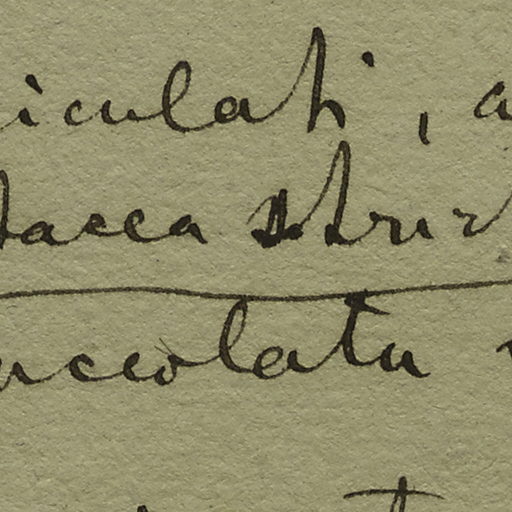 iculati, a
bacca stric
urceolata